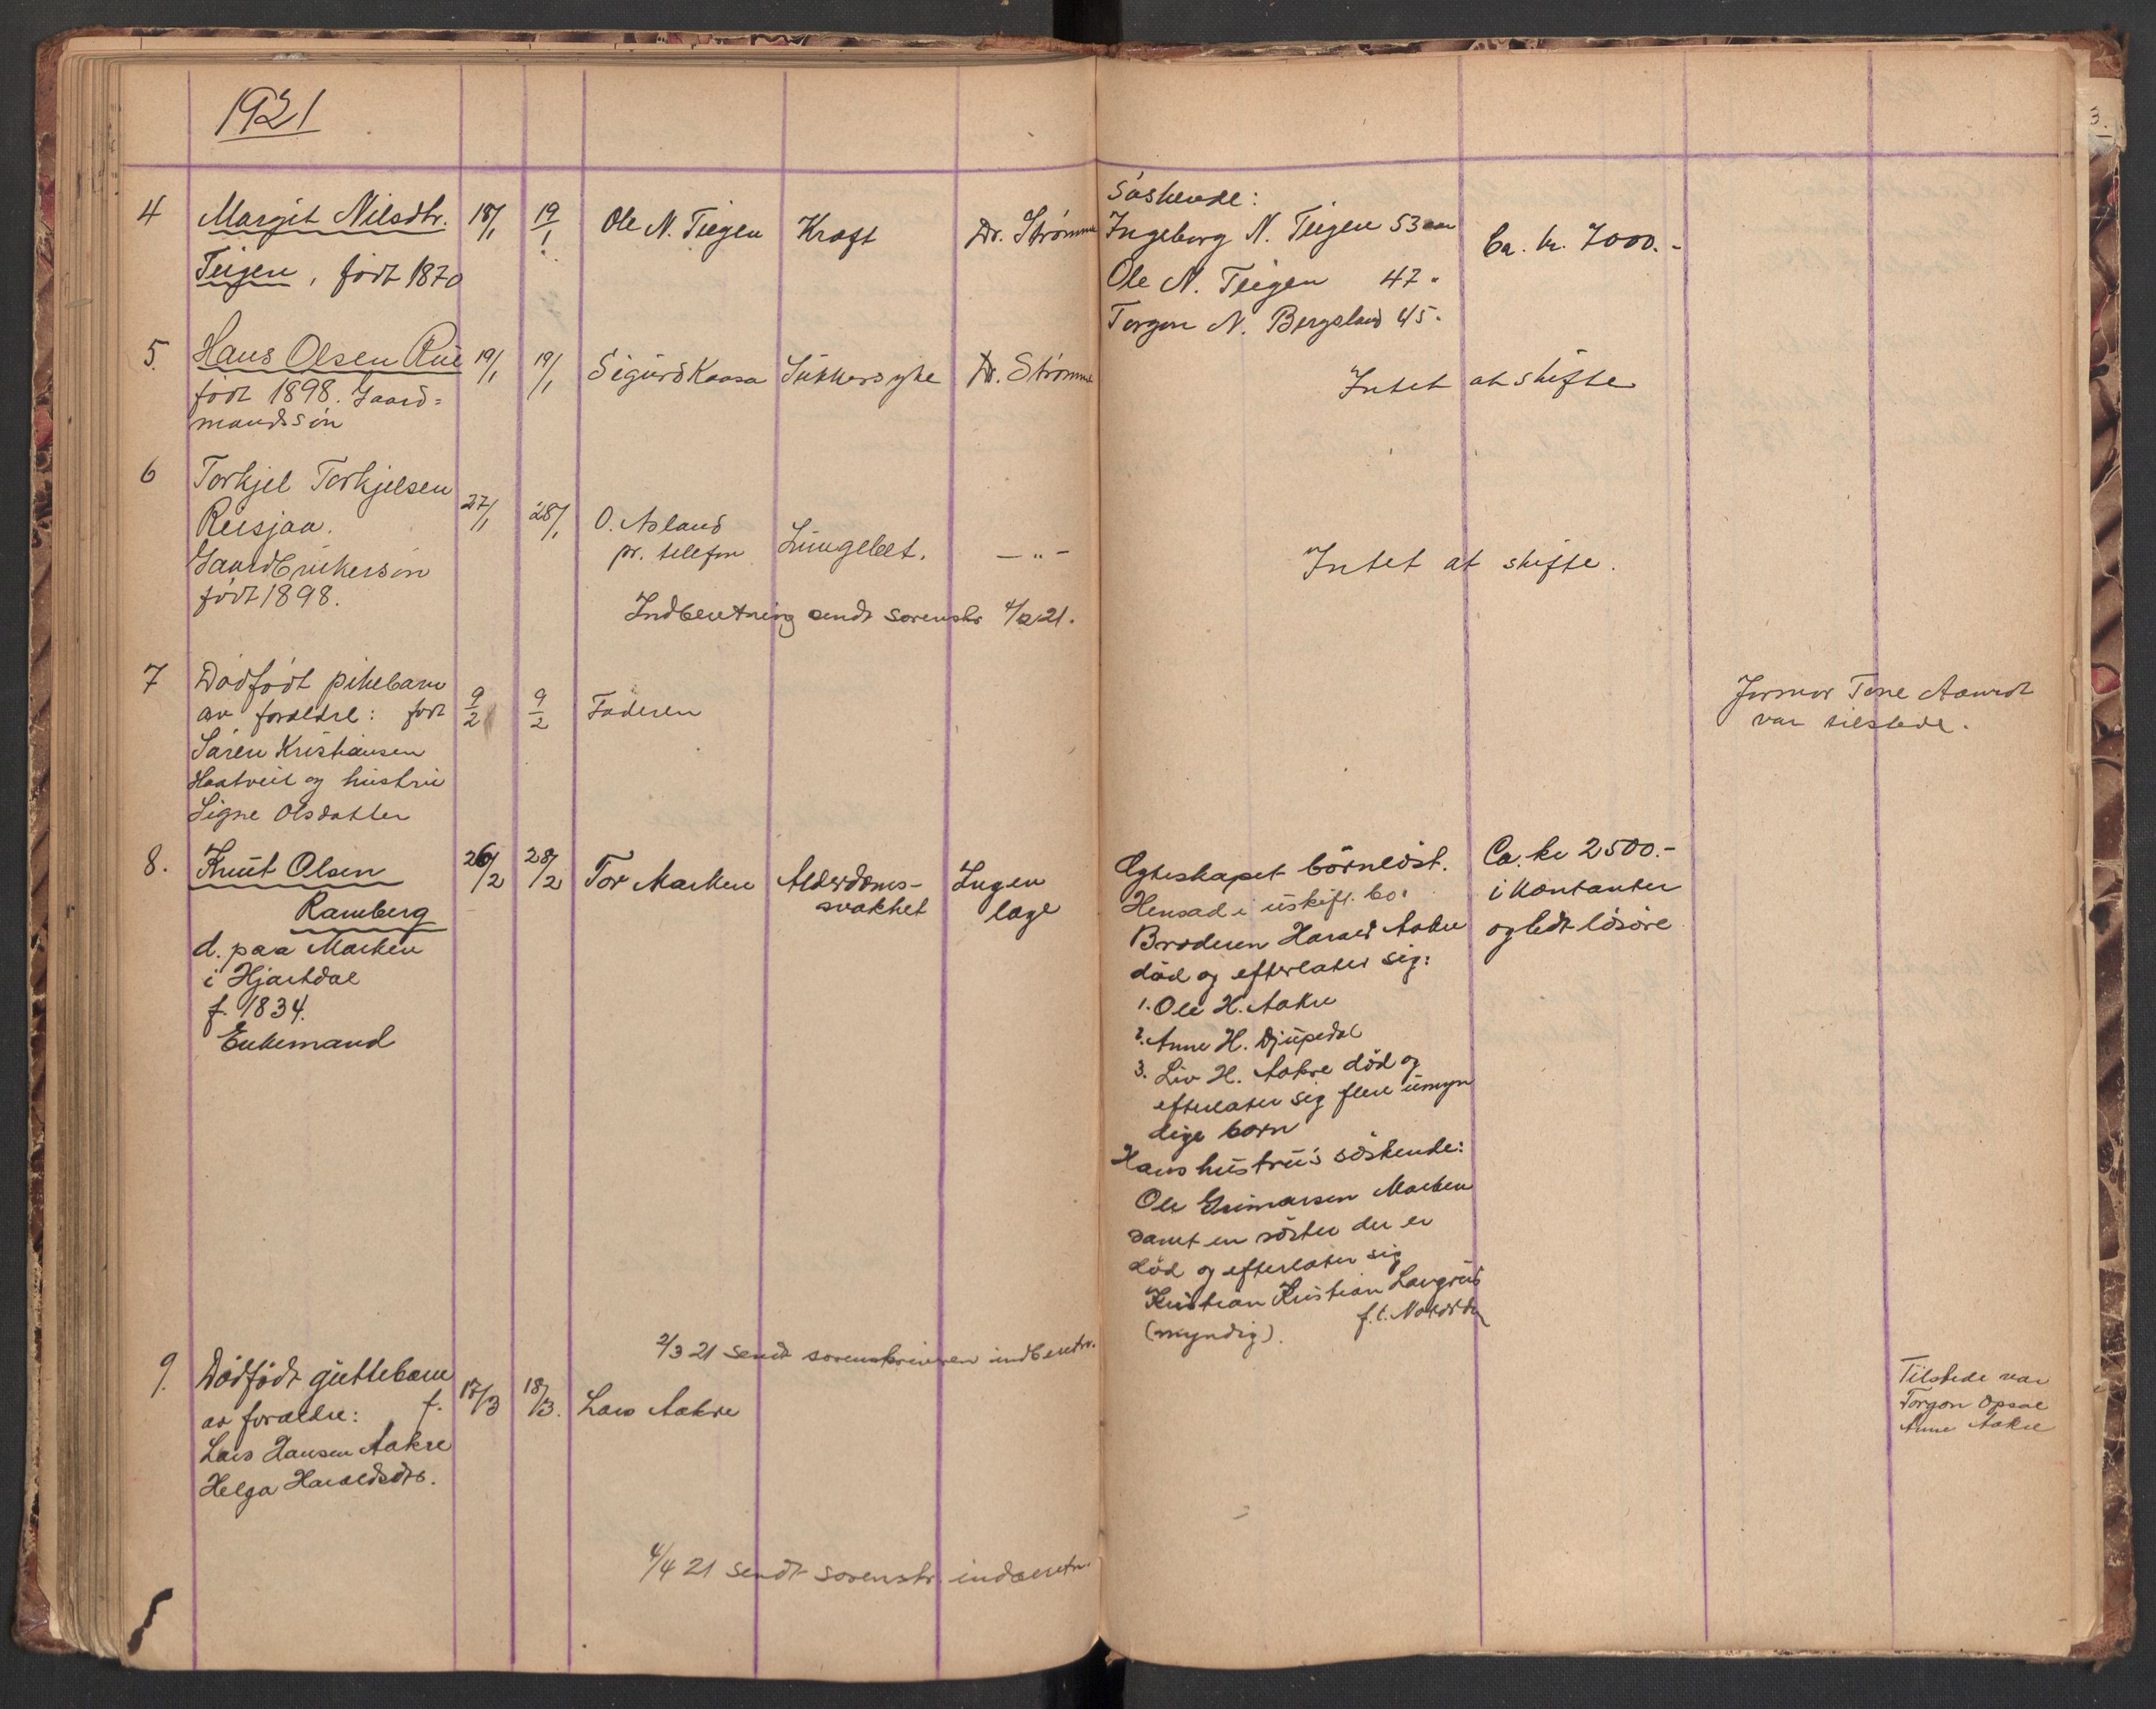 1921
4 Margit Nilsdtr. 18/1 19/1 Ole N. Teigen Kræft Dr. Strømme
Teigen, født 1870
Søskende:
Ingeborg N. Teigen 53 aar Ca. kr. 7000.-
Ole N. Teigen 47 "
Torgon N. Bergsland 45 "
5. Hans Olsen Rue 19/1 19/1 Sigurd Kaasa Sukkersyke Dr. Strømme Intet at skifte
født 1898. Gaard=
mandssøn
6 Torkjel Torkjelsen
Reisjaa. 27/1 28/1 O. Asland
pr. telefon Lungebet. — " — Intet at skifte.
Gaardbrukersøn
født 1898.
Indberetning sendt sorenskr 4/2 21.
7 Dødfødt pikebarn
av forældre: født 9/2 9/2 Faderen
Søren Kristiansen
Haatveit og hustru
Signe Olsdatter
Jormor Tone Aamot
var tilstede.
8. Knut Olsen 26/2 28/2 Tor Marken Alderdoms- Ingen
Ramberg svakhet læge
d. paa Marken
i Hjartdal
f. 1834.
Enkemand
Egteskapet børnløst. Ca. kr 2500.-
Hensad i uskift. bo. i kontanter
Broderen Harald Aakre og lidt løsøre
død og efterlater sig:
1. Ole H. Aakre
2. Anne H. Djupedal
3. Liv H. Aakre død og
efterlater sig flere umyn
dige børn
Hans hustru's søskende:
Ole Gunnarsen Marken
samt en søster der er
død og efterlater sig
Kristian Kristian Langrud
(myndig). f.t. Notodden
2/3 21 sendt sorenskriveren indberetn.
9. Dødfødt guttebarn
av forældre: f. 17/3 18/3. Lars Aakre
Lars Hansen Aakre
Helga Haraldsdtr.
Tilstede var
Torgon Opsal
Anne Aakre
4/4 21 sendt sorenskr. indberetn.
3.